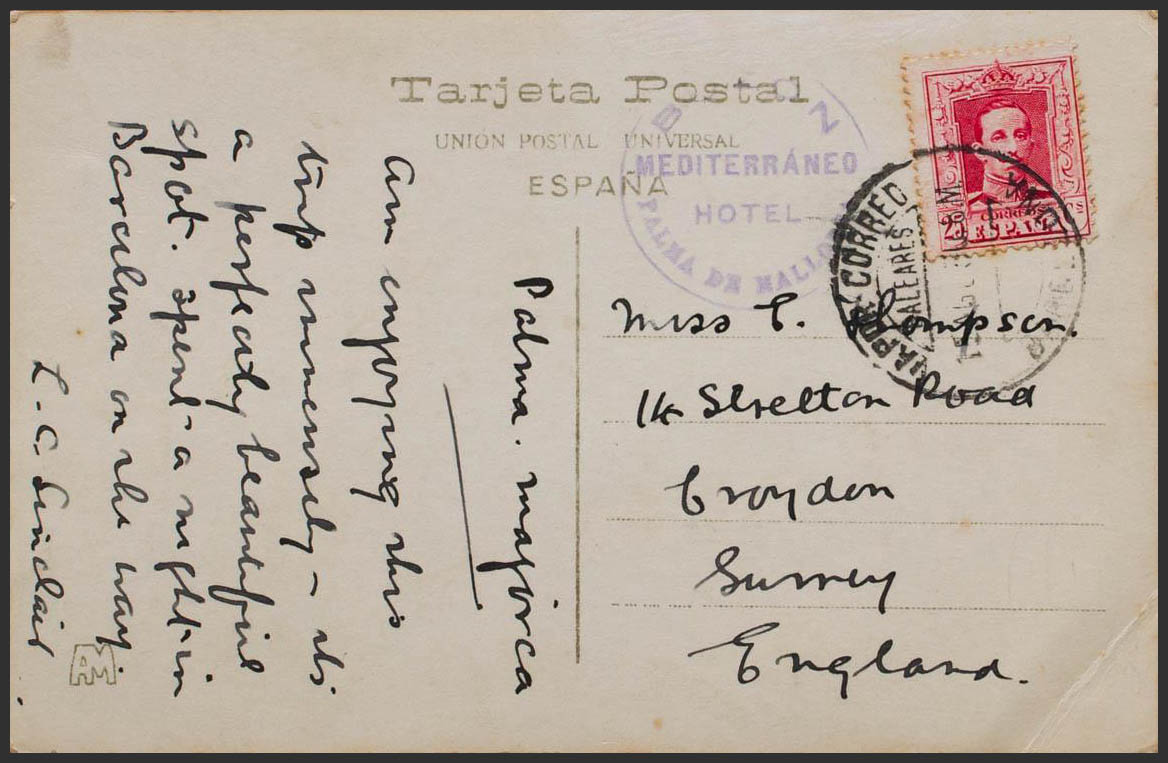 Tarjeta Postal
UNIÓN POSTAL UNIVERSAL
ESPAÑA
MEDITERRÁNEO
HOTEL
PALMA DE MALLO
CORREO
BALEARES
25
CORREOS
ESPAÑA
Palma. Majorca
Am enjoying this
trip immensely – its
a perfectly beautiful
spot. Spent a night in
Barcelona on the way.
L. C. Sinclair
Miss E. Thompson.
14 Stretton Road
Croydon
Surrey
England.